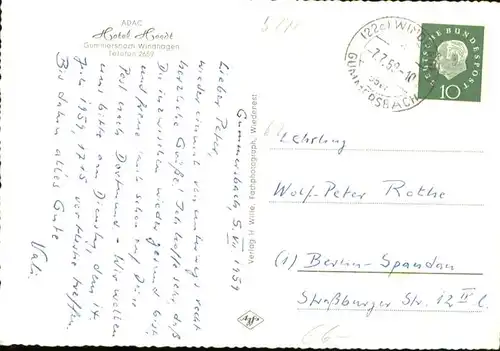 ADAC
Hotel Heedt
Gummersbach Windhagen
Telefon 2659
Gummersbach, 5. VII 1959
Lieber Peter,
wieder einmal von unterwegs recht
herzliche Grüße! Ich hoffe sehr, daß
Du inzwischen wieder gesund bist
und freue mich schon auf Deine
Post nach Dortmund – Wir wollen
uns bitte am Dienstag, dem 14.
Juli 1959, 17.15 treffen.
Bis dahin alles Gute
Vati.
Verlag H. Wille, Fachphotograph, Wiedenest
(22c) WIND
-7.7.59-10
GUMMERSBACH
DEUTSCHE BUNDESPOST
10
Wolf-Peter Rothe
(1) Berlin-Spandau
Straßburger Str. 12 III l.